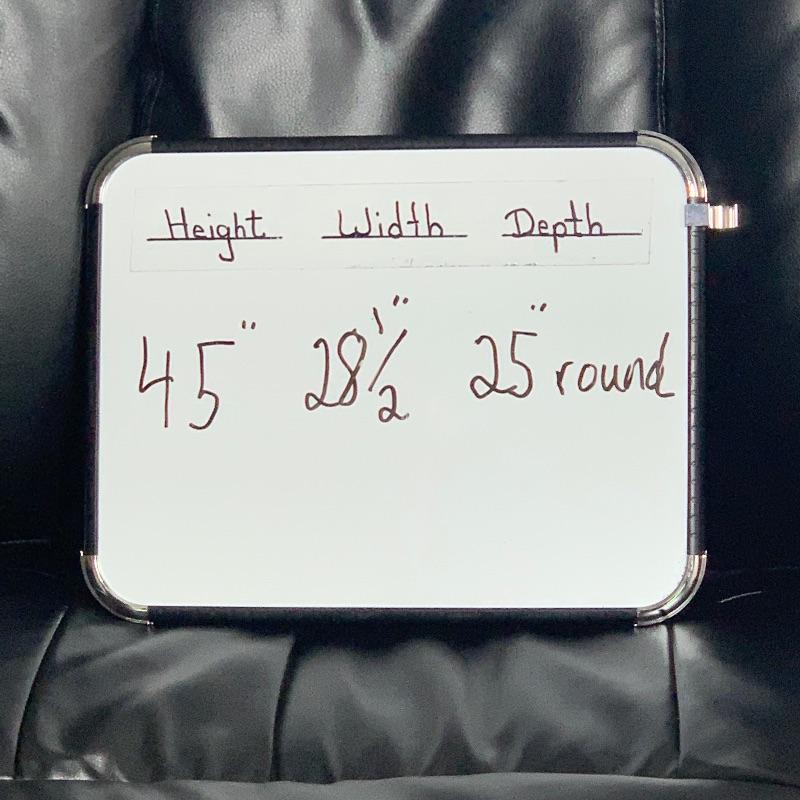 Height Width Depth
45" 28 1/2" 25" round